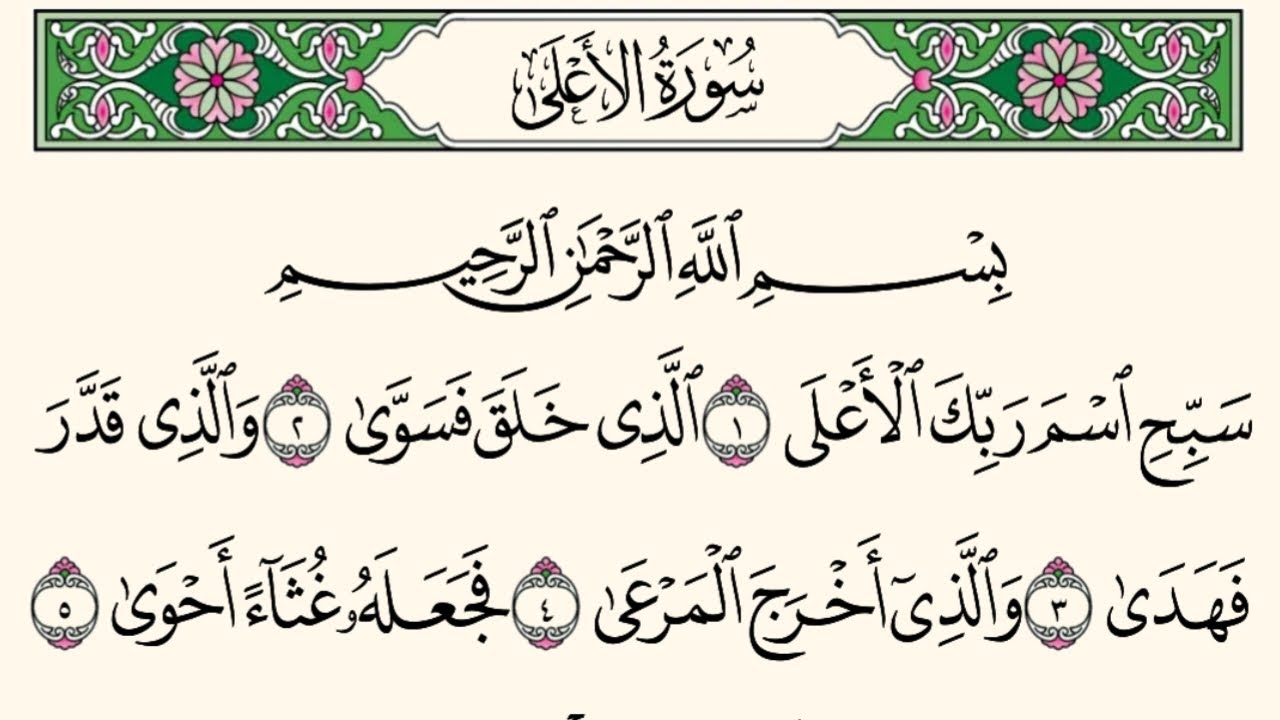 سُورَةُ الأَعْلَىٰ
بِسْمِ ٱللَّهِ ٱلرَّحْمَٰنِ ٱلرَّحِيمِ
سَبِّحِ ٱسْمَ رَبِّكَ ٱلْأَعْلَى ١ ٱلَّذِى خَلَقَ فَسَوَّىٰ ٢ وَٱلَّذِى قَدَّرَ
فَهَدَىٰ ٣ وَٱلَّذِىٓ أَخْرَجَ ٱلْمَرْعَىٰ ٤ فَجَعَلَهُۥ غُثَآءً أَحْوَىٰ ٥